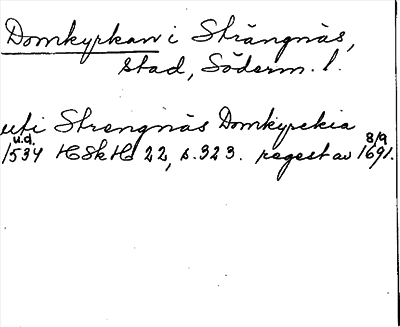 Domkyrkan i Strängnäs,
stad, Söderm. l.
uti Strengnäs Domkyrckia
u.d. 8/9
1534 HSkH 22, s. 323. regest av 1691.